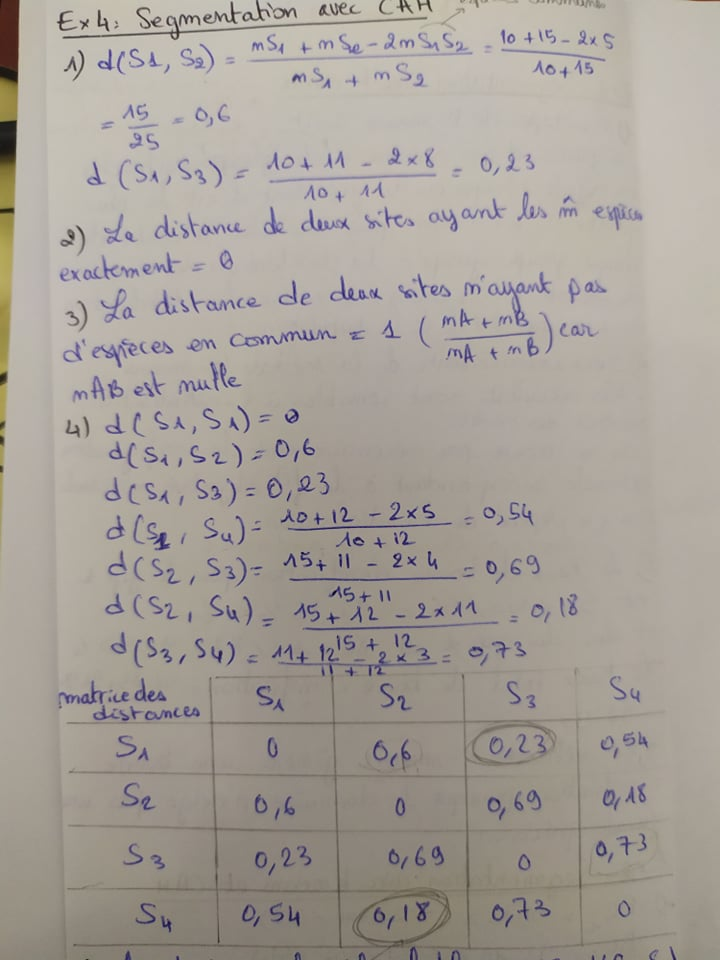 Ex 4: Segmentation avec CAH
1) d(S1, S2) = (mS1 + mS2 - 2mS1S2) / (mS1 + mS2) = (10 + 15 - 2x5) / (10 + 15)
= 15/25 = 0,6
d (S1, S3) = (10 + 11 - 2x8) / (10 + 11) = 0,23
2) La distance de deux sites ayant les m̂ espèces
exactement = 0
3) La distance de deux sites n'ayant pas
d'espèces en commun = 1 ((mA + mB) / (mA + mB)) car
mAB est nulle
4) d(S1, S1) = 0
d(S1, S2) = 0,6
d(S1, S3) = 0,23
d(S1, S4) = (10+12 - 2x5) / (10 + 12) = 0,54
d(S2, S3) = (15+11 - 2x4) / (15+11) = 0,69
d(S2, S4) = (15+12 - 2x11) / (15 + 12) = 0,18
d(S3, S4) = (11+12 - 2x3) / (11+12) = 0,73
matrice des distances S1 S2 S3 S4
S1 0 0,6 0,23 0,54
S2 0,6 0 0,69 0,18
S3 0,23 0,69 0 0,73
S4 0,54 0,18 0,73 0